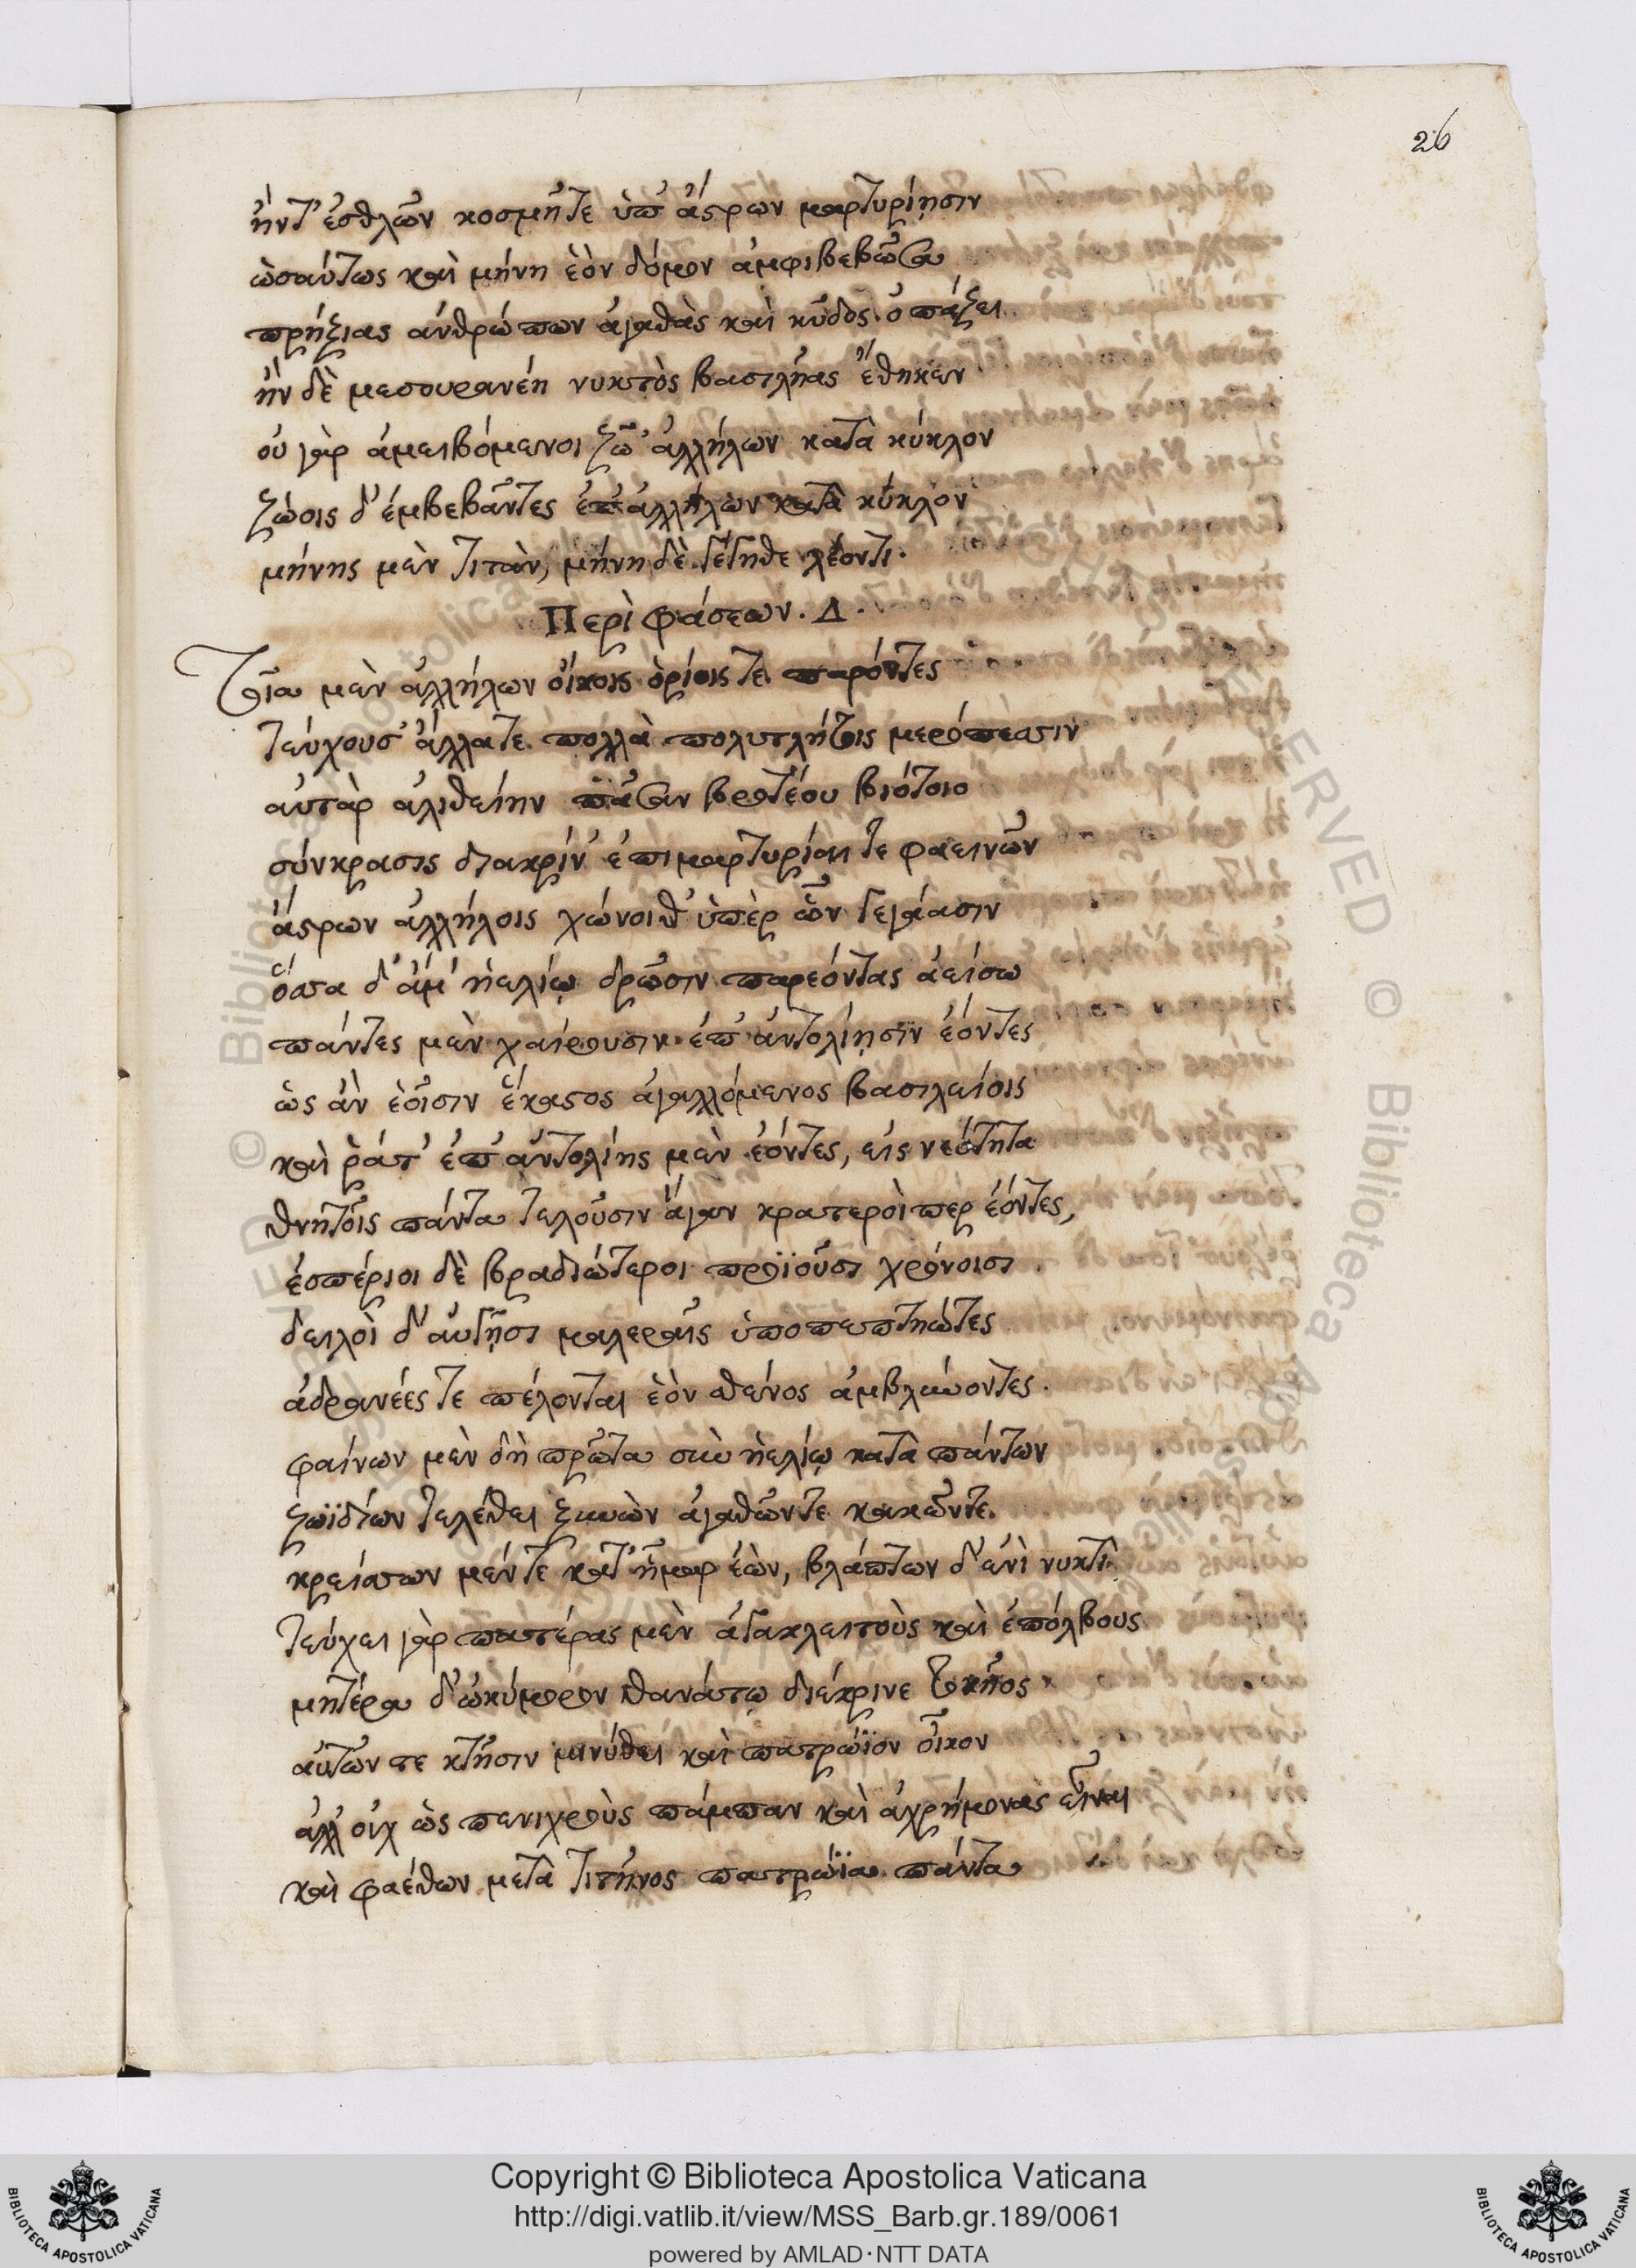 26
ἤντ' ἐσθλῶν κοσμῆτε ὑπ' ἄστρων μαρτυρίησιν
ὡσαύτως καὶ μήνη ἑὸν δόμον ἀμφιβεβῶσα
πρήξιας ἀνθρώπων ἀγαθὰς καὶ κῦδος ὀπάζει
ἢν δὲ μεσουρανέη νυκτὸς βασιλῆας ἔθηκεν
οὐ γὰρ ἀμειβόμενοι ζῶ' ἀλλήλων κατὰ κύκλον
ζώοις δ' ἐμβεβάντες ἐπ' ἀλλήλων κατὰ κύκλον
μήνης μὲν τιτὰν, μήνη δὲ γέγηθε λέοντι.
Περὶ φάσεων. Δ.
Τοῖα μὲν ἀλλήλων οἴκοις ὁρίοις τε παρόντες
τεύχουσ' ἄλλατε πολλὰ πολυτλήτοις μερόπεσσιν
αὐτὰρ ἀλιθείην πᾶσαν βροτέου βιότοιο
σύνκρασις διακρίν' ἐπιμαρτυρίαι τε φαεινῶν
ἄστρων ἀλλήλοις χώνοιθ' ὑπὲρ ὧν γεγάασιν
ὅσσα δ' ἅμ' ἠελίῳ δρῶσιν παρεόντας ἀείσω
πάντες μὲν χαίρουσιν ἐπ' ἀντολίησιν ἐόντες
ὡς ἂν ἑοῖσιν ἕκαστος ἀγαλλόμενος βασιλείοις
καὶ ῥάτ' ἐπ' ἀντολίης μὲν ἐόντες, εἰς νεότητα
θνητοῖς πάντα τελοῦσιν ἄγαν κρατεροὶ περ ἐόντες,
ἑσπέριοι δὲ βραδιώτεροι προϊοῦσι χρόνοισι
δειλοὶ δ' αὐγῆσι μαλεραῖς ὑποπεπτηῶτες
ἀδρανέες τε πέλονται ἑὸν σθένος ἀμβλυώοντες.
φαίνων μὲν δὴ πρῶτα σὺν ἠελίῳ κατὰ πάντων
ζωϊδίων τελέθει ξυνὸν ἀγαθῶντε κακῶντε.
κρείσσων μέντε κατ' ἦμαρ ἐὼν, βλάπτων δ' ἐνὶ νυκτὶ
τεύχει γὰρ πατέρας μὲν ἀγακλειτοὺς καὶ ἐπόλβους
μητέρα δ' ὠκύμορον θανάτῳ διέκρινε τοκῆος
αὐτῶν τε κτῆσιν μινύθει καὶ πατρώϊον οἶκον
ἀλλ' οὐχ ὡς πενιχροὺς πάμπαν καὶ ἀχρήμονας εἶναι
καὶ φαέθων μετὰ τιτῆνος πατρώϊα πάντα
Copyright © Biblioteca Apostolica Vaticana
http://digi.vatlib.it/view/MSS_Barb.gr.189/0061
powered by AMLAD·NTT DATA
BIBLIOTECA APOSTOLICA VATICANA
BIBLIOTECA APOSTOLICA VATICANA